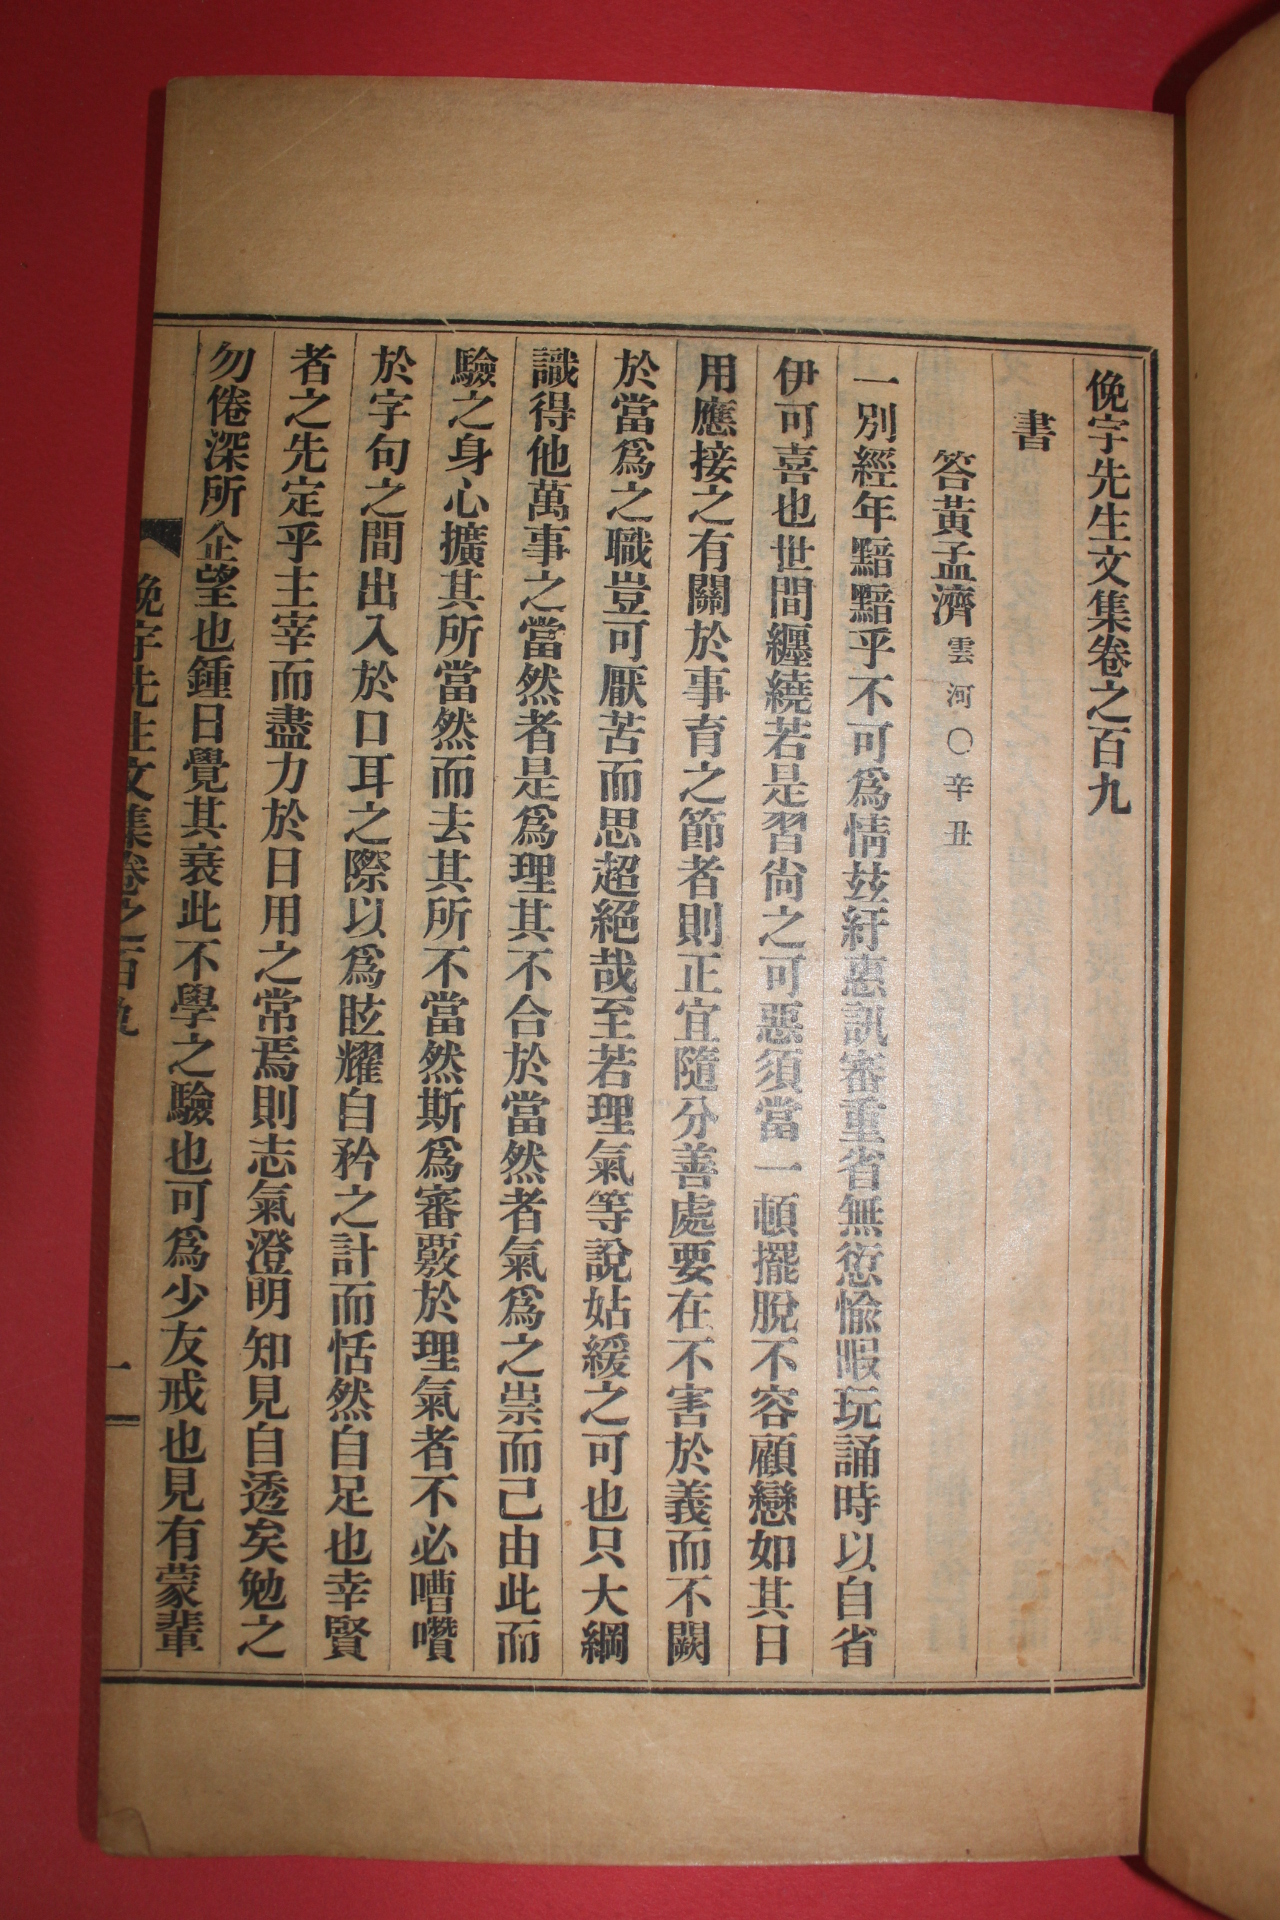 俛宇先生文集卷之百九
書
答黃孟濟雲河○辛丑
一別經年黯黯乎不可爲情玆紆惠訊審重省無愆愉暇玩誦時以自省
伊可喜也世間纏繞若是習尙之可惡須當一頓擺脫不容顧戀如其日
用應接之有關於事育之節者則正宜隨分善處要在不害於義而不闕
於當爲之職豈可厭苦而思超絕哉至若理氣等說姑緩之可也只大綱
識得他萬事之當然者是爲理其不合於當然者氣爲之祟而己由此而
驗之身心擴其所當然而去其所不當然斯爲審覈於理氣者不必嘈囋
於字句之間出入於口耳之際以爲眩耀自矜之計而恬然自足也幸賢
者之先定乎主宰而盡力於日用之常焉則志氣澄明知見自透矣勉之
勿倦深所企望也鍾日覺其衰此不學之驗也可爲少友戒也見有蒙輩
俛宇先生文集卷之百九
一